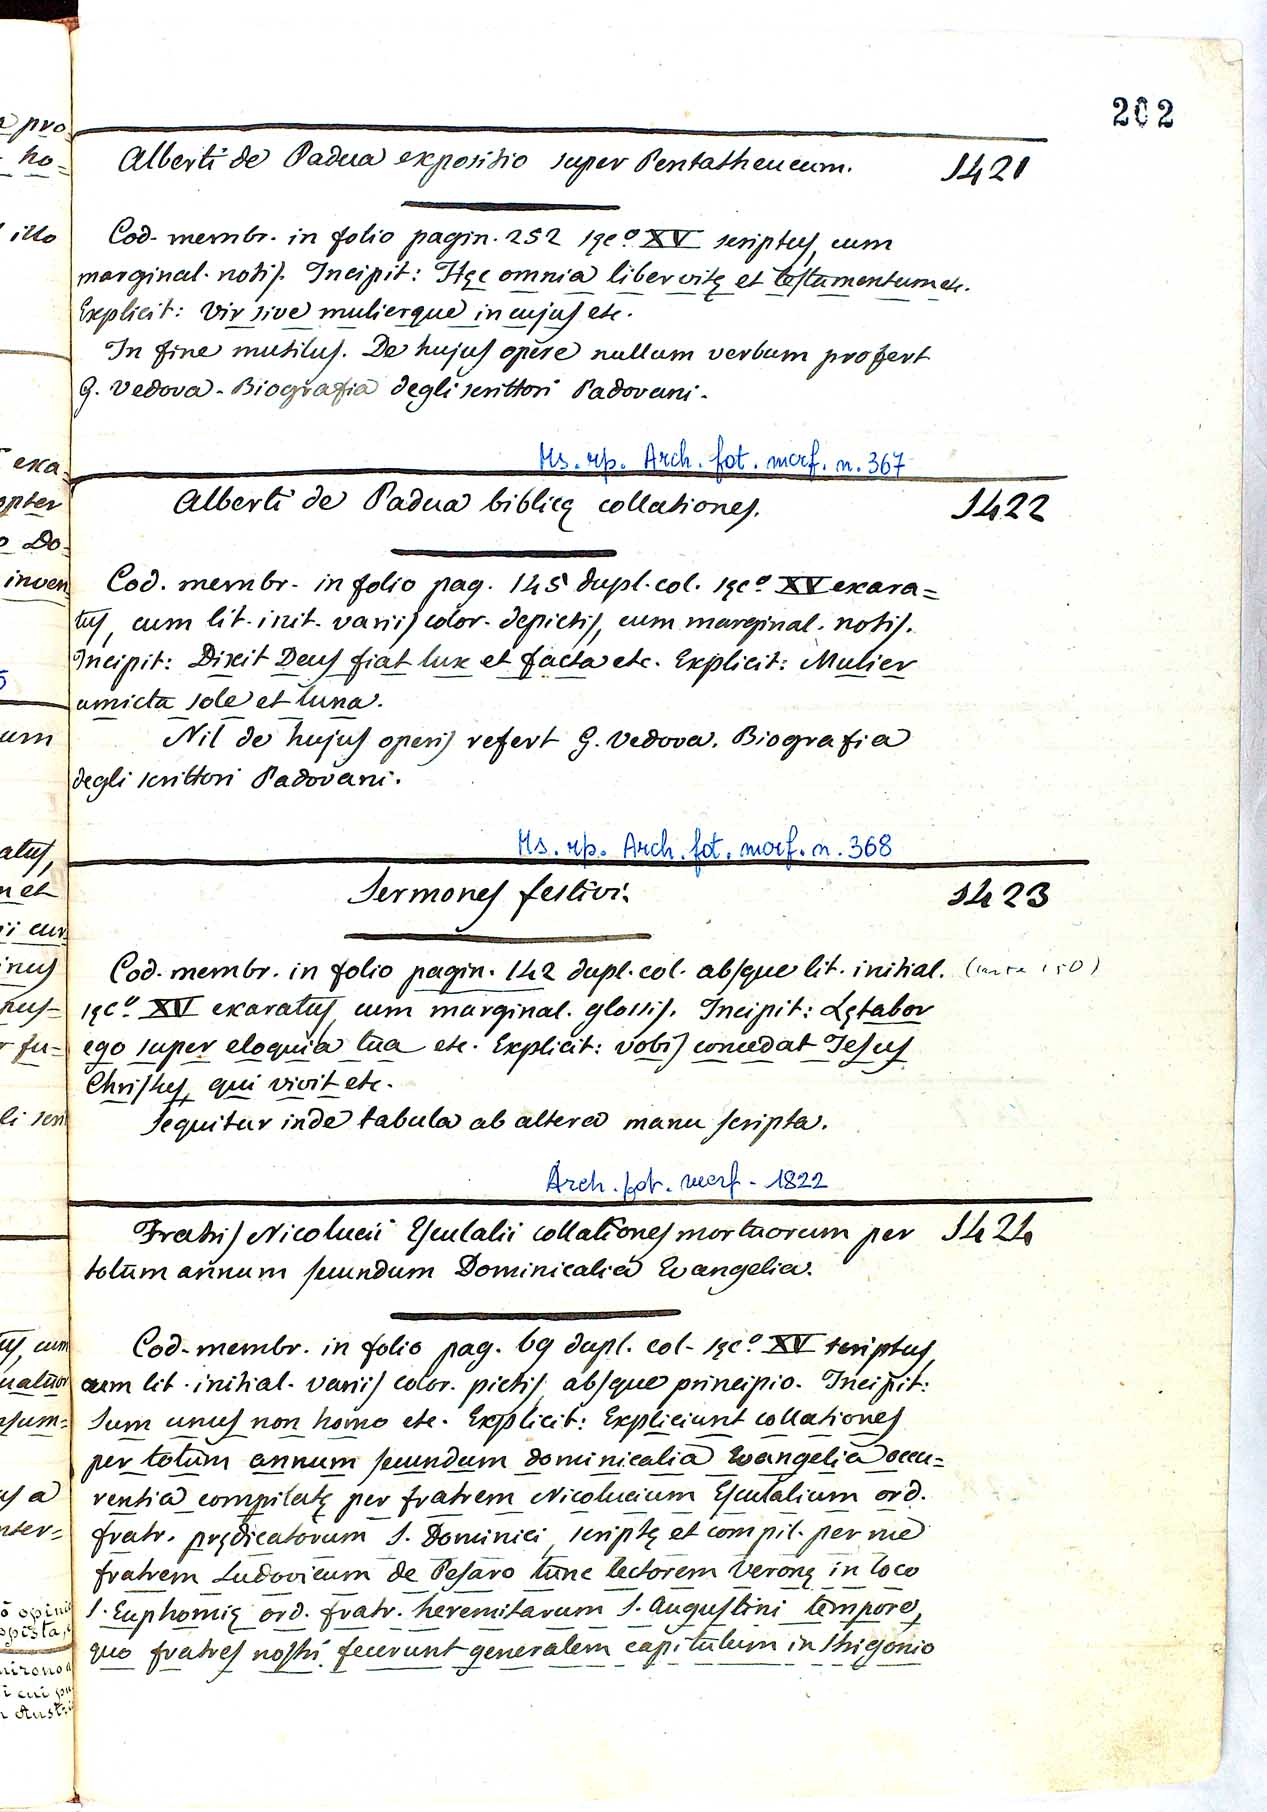 202
Alberti de Padua expositio super Pentatheucum. 1421
Cod. membr. in folio pagin. 252 sęc.º XV scriptus, cum
marginal. notis. Incipit: Hęc omnia liber vitę et testamentum etc.
Explicit: Vir sive mulierque in cujus etc.
In fine mutilus. De hujus opere nullum verbum profert
G. Vedova - Biografia degli scrittori Padovani.
Ms. rip. Arch. fot. morf. n. 367
Alberti de Padua biblicę collationes. 1422
Cod. membr. in folio pag. 145 dupl. col. sęc.º XV exara=
tus, cum lit. init. variis color. depictis, cum marginal. notis.
Incipit: Dixit Deus fiat lux et facta etc. Explicit: Mulier
amicta sole et luna.
Nil de hujus operis refert G. Vedova. Biografia
degli scrittori Padovani.
Ms. rip. Arch. fot. morf. n. 368
Sermones festivi. 1423
Cod. membr. in folio pagin. 142 dupl. col. absque lit. initial.
sęc.º XV exaratus, cum marginal. glossis. Incipit: Lętabor
ego super eloquia tua etc. Explicit: vobis concedat Jesus
Christus, qui vivit etc.
Sequitur inde tabula ab altera manu scripta.
Arch. fot. morf. 1822
Fratris Nicolucii Esculalii collationes mortuorum per 1424
totum annum secundum Dominicalia Evangelia.
Cod. membr. in folio pag. 69 dupl. col. sęc.º XV scriptus,
cum lit. initial. variis color. pictis, absque principio. Incipit:
Sum unus non homo etc. Explicit: Expliciunt collationes
per totum annum secundum dominicalia Evangelia occu=
rentia compilatę per fratrem Nicolucium Esculalium ord.
fratr. prędicatorum S. Dominici, scriptę et compil. per me
fratrem Ludovicum de Pesaro tunc lectorem Veronę in loco
S. Euphomię ord. fratr. heremitarum S. Augustini tempore,
quo fratres nostri fecerunt generalem capitulum in Strigonio